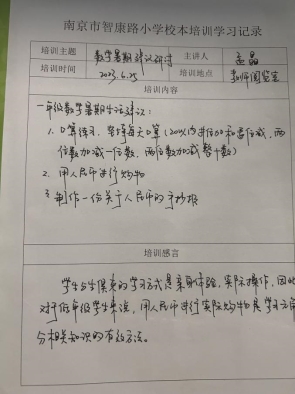 南京市智康路小学校本培训学习记录
培训主题 数学暑期建议研讨 主讲人 孟晶
培训时间 2023.6.25 培训地点 教师阅览室
培训内容
一年级数学暑期生活建议:
1. 口算练习,坚持每天口算(20以内进位加和退位减,两
位数加减一位数,两位数加减整十数)
2. 用人民币进行购物
3. 制作一份关于人民币的手抄报
培训感言
学生与生俱来的学习方式是亲身体验,实际操作,因此
对于低年级学生来说,用人民币进行实际购物是学习元角
分相关知识的有效方法。